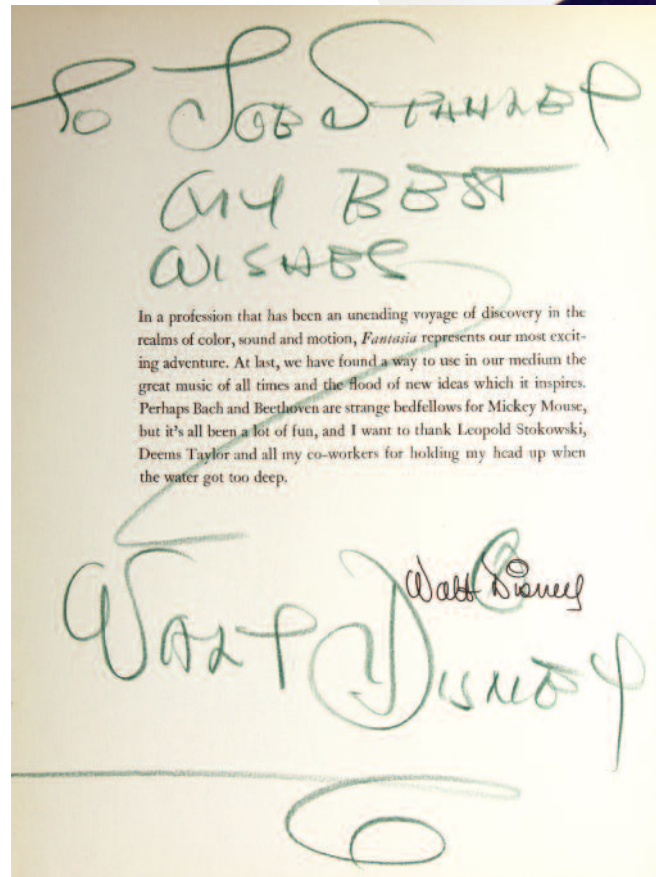 To Joe Stanley
My Best
Wishes
In a profession that has been an unending voyage of discovery in the
realms of color, sound and motion, Fantasia represents our most excit-
ing adventure. At last, we have found a way to use in our medium the
great music of all times and the flood of new ideas which it inspires.
Perhaps Bach and Beethoven are strange bedfellows for Mickey Mouse,
but it's all been a lot of fun, and I want to thank Leopold Stokowski,
Deems Taylor and all my co-workers for holding my head up when
the water got too deep.
Walt Disney
Walt Disney